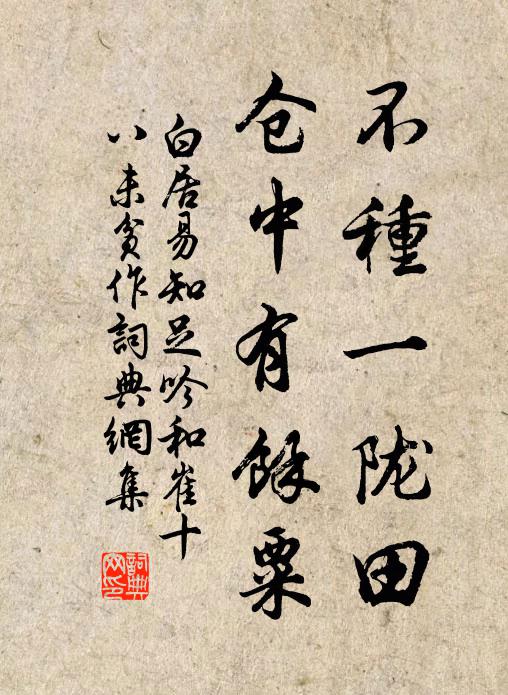 不種一陇田
仓中有餘粟
白居易知足吟和崔十
八未貧作詞典網集
詞典
网印